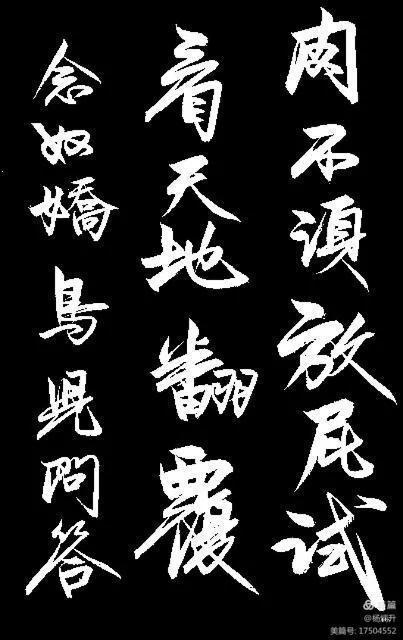 肉不須放屁試
看天地翻覆
念奴嬌鳥兒問答
美篇
美篇号: 17504552